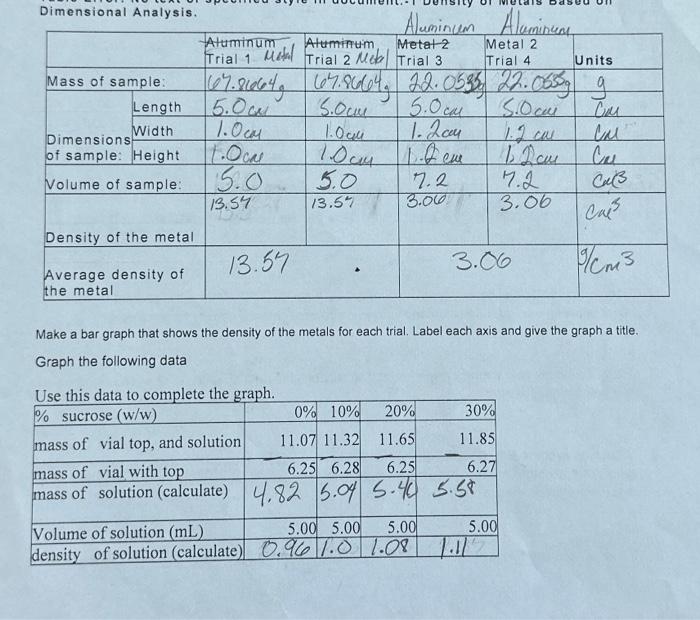 Dimensional Analysis.
Aluminum Aluminum
Aluminum Aluminum Metal 2 Metal 2
Trial 1 Metal Trial 2 Metal Trial 3 Trial 4 Units
Mass of sample: 67.8664g 67.8664g 22.0535g 22.0535g g
Length 5.0cm 5.0cm 5.0cm 5.0cm cm
Width 1.0cm 1.0cm 1.2cm 1.2cm cm
Dimensions
of sample: Height 1.0cm 1.0cm 1.2cm 1.2cm cm
Volume of sample: 5.0 5.0 7.2 7.2 cm3
13.57 13.57 3.06 3.06 cm3
Density of the metal
Average density of 13.57 3.06 g/cm3
the metal
Make a bar graph that shows the density of the metals for each trial. Label each axis and give the graph a title.
Graph the following data
Use this data to complete the graph.
% sucrose (w/w) 0% 10% 20% 30%
mass of vial top, and solution 11.07 11.32 11.65 11.85
mass of vial with top 6.25 6.28 6.25 6.27
mass of solution (calculate) 4.82 5.04 5.40 5.58
Volume of solution (mL) 5.00 5.00 5.00 5.00
density of solution (calculate) 0.96 1.0 1.08 1.11